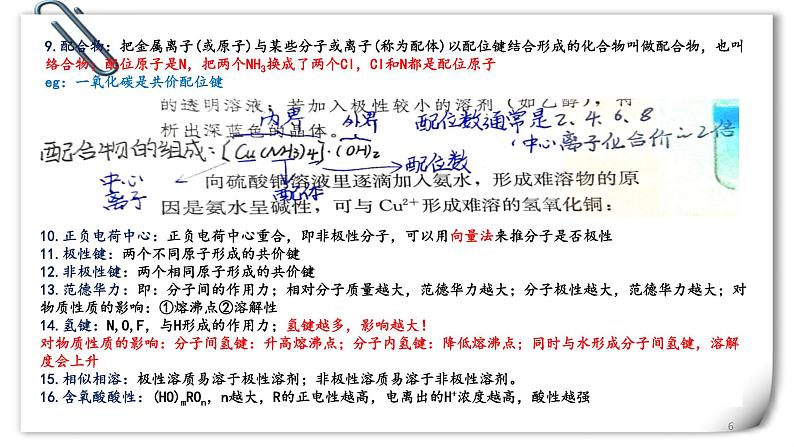 9.配合物：把金属离子(或原子)与某些分子或离子(称为配体)以配位键结合形成的化合物叫做配合物，也叫
络合物。配位原子是N，把两个NH3换成了两个Cl，Cl和N都是配位原子
eg：一氧化碳是共价配位键
的透明溶液；若加入极性较小的溶剂（如乙醇），将
析出深蓝色的晶体。
内界 外界 配位数通常是2、4、6、8
配合物的组成：[Cu(NH3)4]·(OH)2 (中心离子化合价的2倍
中心离子 配体 配位数
向硫酸铜溶液里逐滴加入氨水，形成难溶物的原
因是氨水呈碱性，可与 Cu2+形成难溶的氢氧化铜：
10.正负电荷中心：正负电荷中心重合，即非极性分子，可以用向量法来推分子是否极性
11.极性键：两个不同原子形成的共价键
12.非极性键：两个相同原子形成的共价键
13.范德华力：即：分子间的作用力；相对分子质量越大，范德华力越大；分子极性越大，范德华力越大；对
物质性质的影响：①熔沸点②溶解性
14.氢键：N,O,F，与H形成的作用力；氢键越多，影响越大！
对物质性质的影响：分子间氢键：升高熔沸点；分子内氢键：降低熔沸点；同时与水形成分子间氢键，溶解
度会上升
15.相似相溶：极性溶质易溶于极性溶剂；非极性溶质易溶于非极性溶剂。
16.含氧酸酸性：(HO)mROn，n越大，R的正电性越高，电离出的H+浓度越高，酸性越强
6